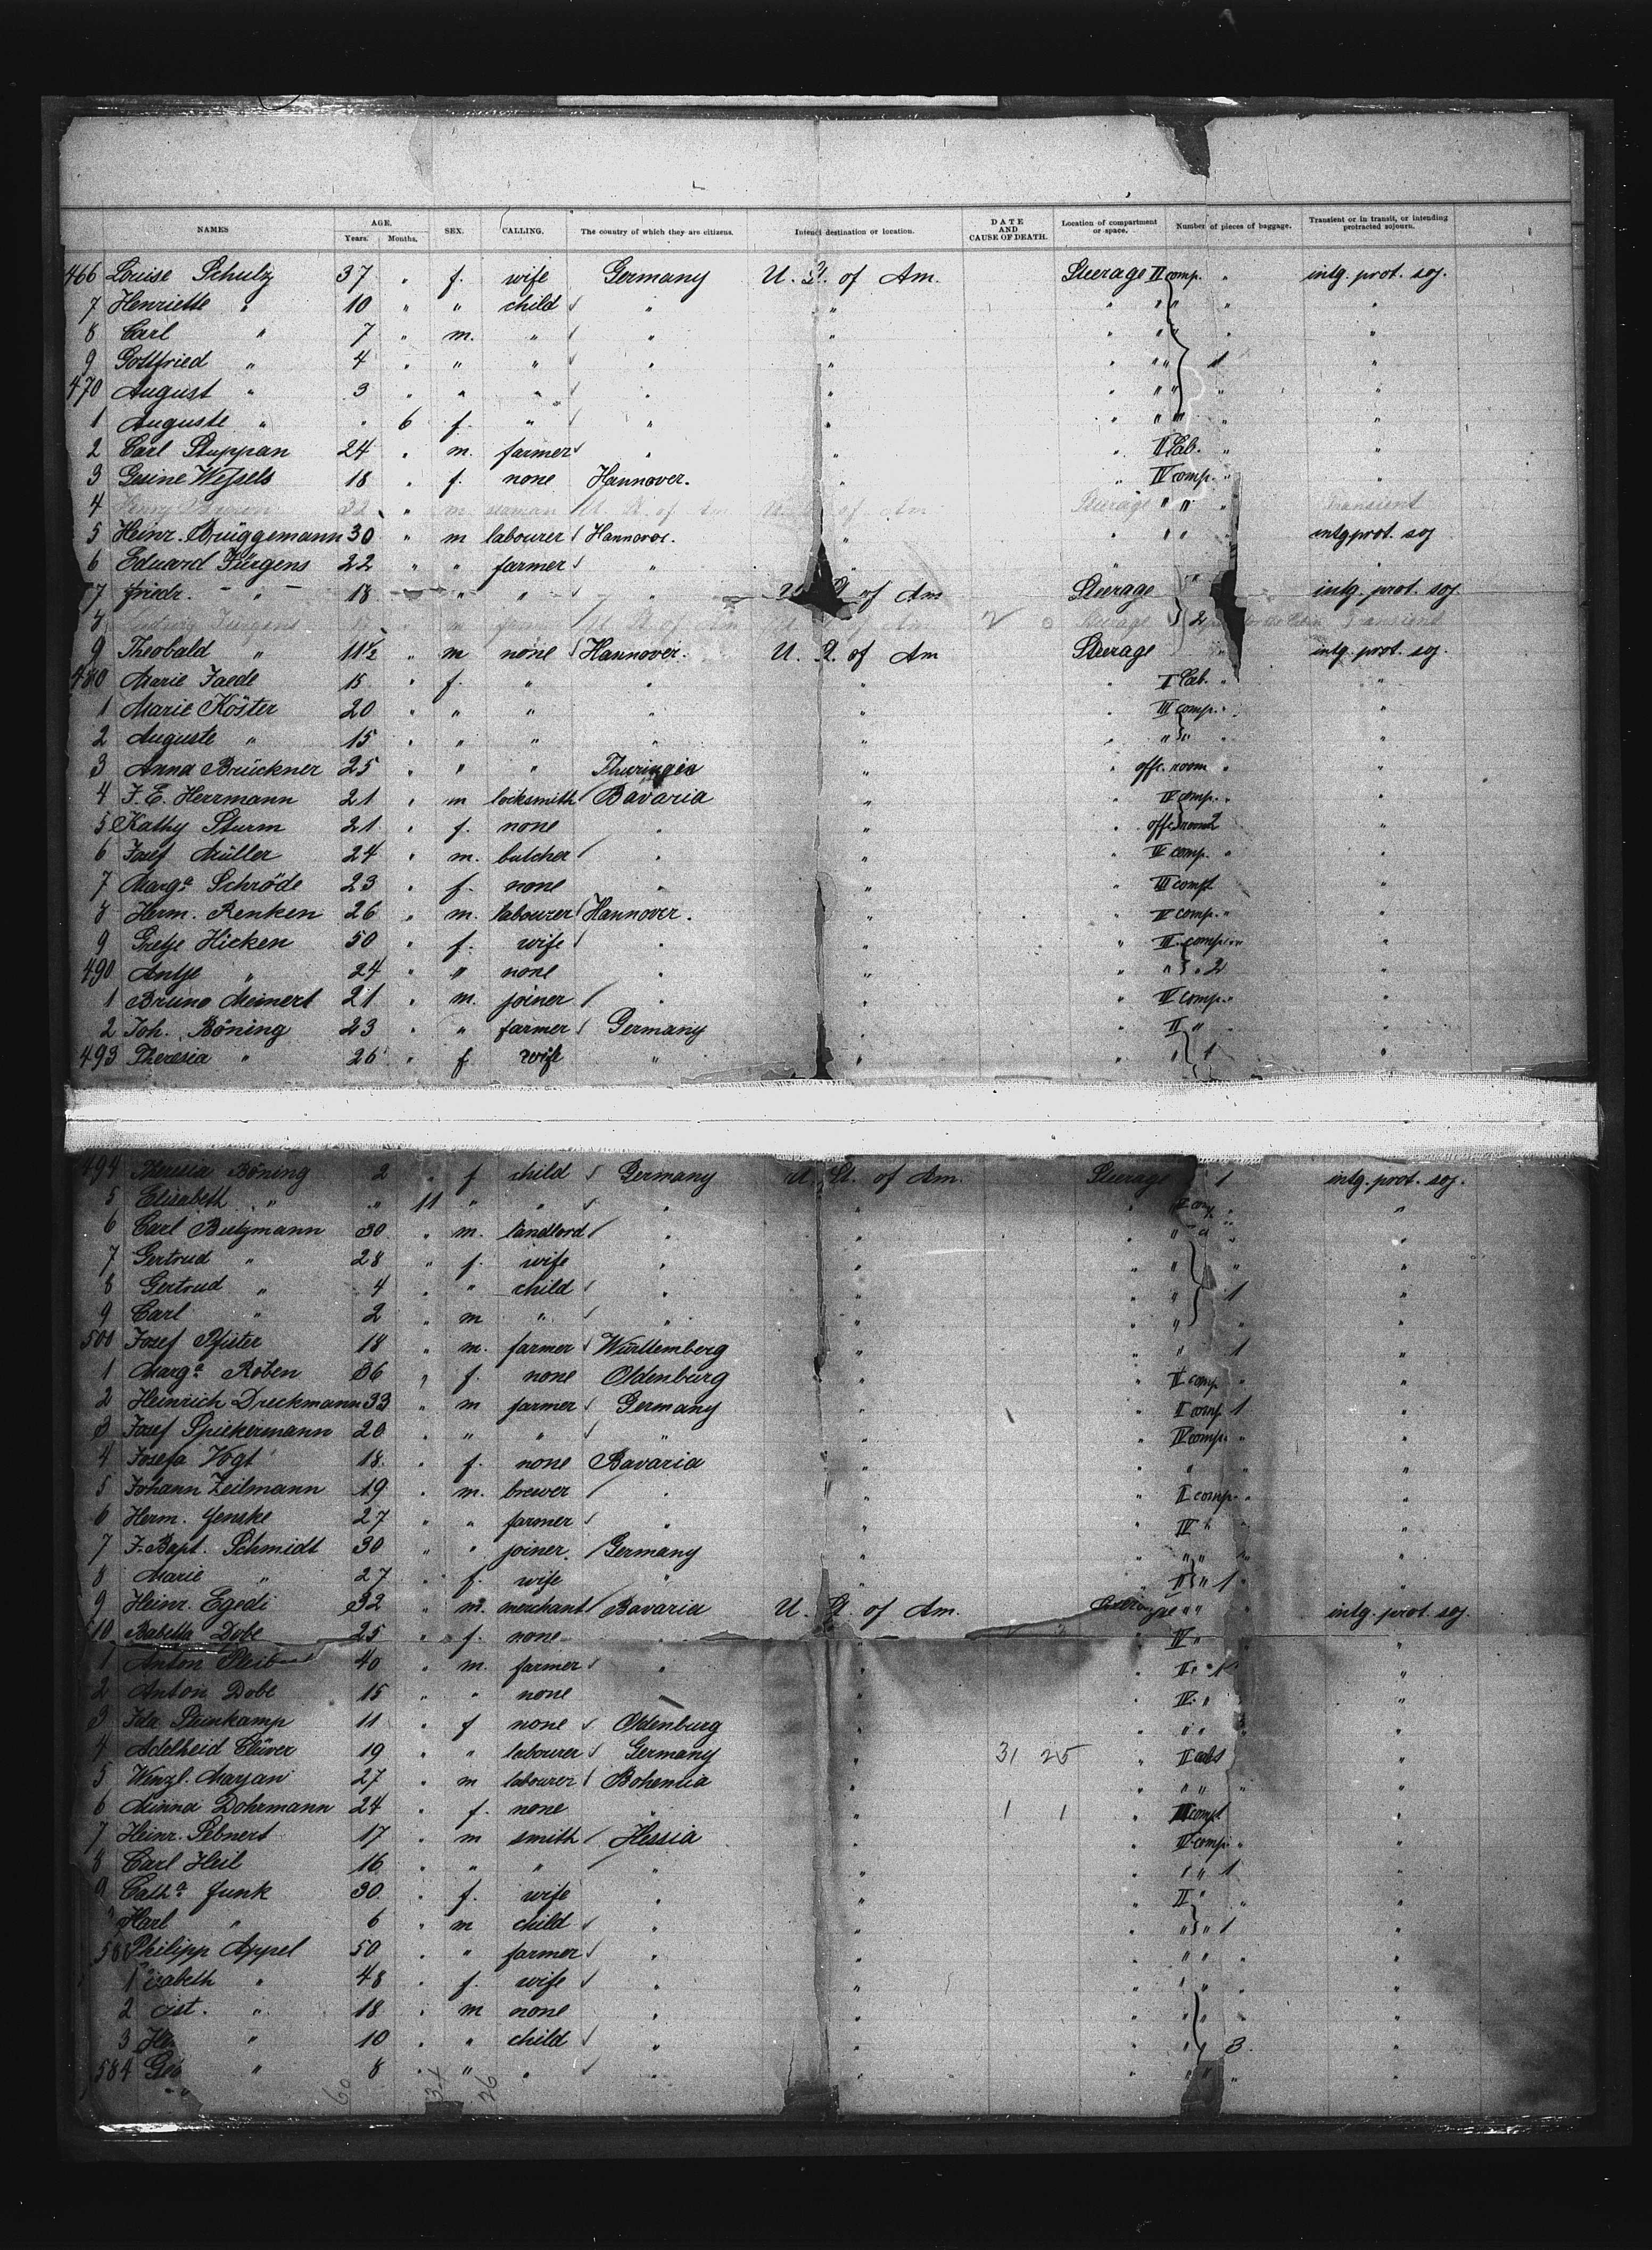 NAMES AGE. Years. Months. SEX. CALLING. The country of which they are citizens. Intend destination or location. DATE AND CAUSE OF DEATH. Location of compartment or space. Number of pieces of baggage. Transient or in transit, or intending protracted sojourn.
466 Louise Schulz 37 " f. wife Germany U. St. of Am. Steerage II comp. " intg. prot. soj.
7 Henriette " 10 " " child " " " " " "
8 Carl " 7 " m. " " " " " " "
9 Gottfried " 4 " " " " " " " 1 "
470 August " 3 " " " " " " " " "
1 Auguste " " 6 f. " " " " " " "
2 Carl Stuppan 24 " m. farmer " " " II Cab. " "
3 Gesine Wessels 18 " f. none Hannover. " " IV comp. " "
4 Henry 32 " m seaman U. St. of Am U. St. of Am Steerage " " " Transient
5 Heinr. Brüggemann 30 " m labourer Hannover. " " " " intg prot. soj
6 Eduard Jürgens 22 " " farmer " " " " "
7 Friedr. " 18 " " " " U. St. of Am Steerage " intg. prot. soj
8 Ludwig Jürgens m farmer U. St. of Am U. St. of Am Steerage 2 Transient
9 Theobald " 11½ " m none Hannover. U. St. of Am Steerage " intg. prot. soj.
480 Marie Jaede 15 " f. " " " " II Cab. " "
1 Marie Köster 20 " " " " " " III comp. " "
2 Auguste " 15 " " " " " " " " "
3 Anna Brückner 25 " " " Thuringia " " offc. room " "
4 J. E. Herrmann 21 " m locksmith Bavaria " " IV comp. " "
5 Kathy Sturm 21 " f. none " " " offc. room 2 "
6 Josef Müller 24 " m. butcher " " " IV comp. " "
7 Marga Schröde 23 " f. none " " " III compt "
8 Herm. Renken 26 " m. labourer Hannover. " " IV comp. " "
9 Gretje Hicken 50 " f. wife " " " III comp. " "
490 Antje " 24 " " none " " " " 2 "
1 Bruno Meinert 21 " m. joiner " " " IV comp. " "
2 Joh. Böning 23 " " farmer Germany " " II " " "
493 Theresia " 26 " f wife " " " " 1 "
494 Theresia Böning 2 " f child Germany U. St. of Am. Steerage 1 intg. prot. soj.
5 Elisabeth " " 11 " " " " " II comp. " "
6 Carl Butzmann 30 " m. landlord " " " " " "
7 Gertrud " 28 " f. wife " " " " " "
8 Gertrud " 4 " " child " " " " 1 "
9 Carl " 2 " m " " " " " " "
500 Josef Pfister 18 " m. farmer Württemberg " " " 1 "
1 Marga Röben 36 " f. none Oldenburg " " II comp " "
2 Heinrich Dreckmann 33 " m farmer Germany " " II comp 1 "
3 Josef Spiekermann 20 " " " " " " IV comp. " "
4 Josefa Vogt 18 " f. none Bavaria " " " " "
5 Johann Zeilmann 19 " m. brewer " " " II comp. " "
6 Herm. Jenske 27 " " farmer " " " IV " " "
7 J. Bapt. Schmidt 30 " " joiner. Germany " " " " " "
8 Marie " 27 " f. wife " " " II " 1 "
9 Heinr. Egedi 32 " m. merchant Bavaria U. St. of Am. Steerage " " intg. prot. soj.
10 Babetta Dobe 25 " f. none " " " IV " "
1 Anton 40 " m. farmer " " " II " 1 "
2 Anton Dobe 15 " " none " " " IV " "
3 Ida Steinkamp 11 " f none Oldenburg " " " " "
4 Adelheid Clüver 19 " " labourer Germany " 31 25 " II cab "
5 Wenzl. Marjan 27 " m labourer Bohemia " " " " " "
6 Minna Dohrmann 24 " f. none " " 1 1 " III compt "
7 Heinr. 17 " m smith Hessia " " IV comp. " "
8 Carl Heil 16 " " " " " " " " 1 "
9 Catha Funk 30 " f. wife " " " II " " "
" Karl " 6 " m child " " " " " 1 "
580 Philipp Appel 50 " " farmer " " " " " " "
1 izabeth " 48 " f. wife " " " " " " "
2 ist. " 18 " m none " " " " " "
3 He " 10 " " child " " " " " 3. "
584 Geo " 8 " " " " " " " " " "
60 34 26